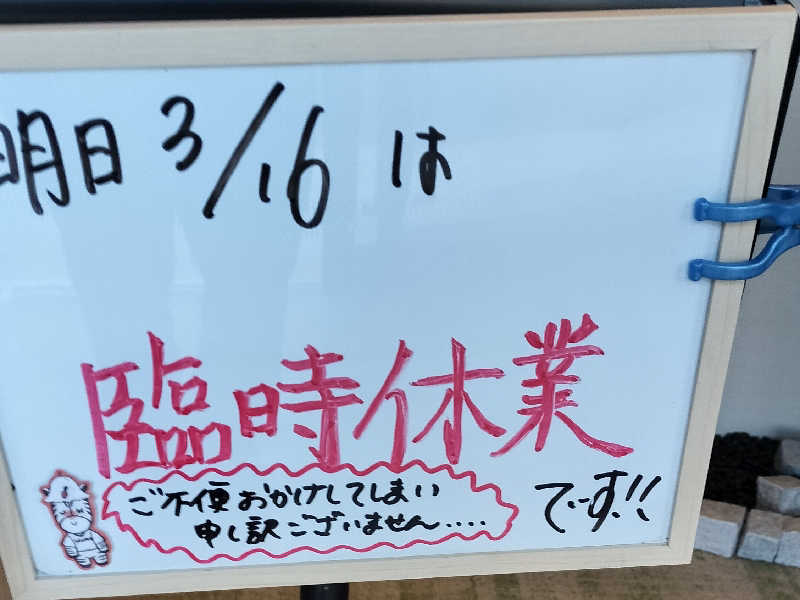 明日 3/16 は
臨時休業
ご不便おかけしてしまい
申し訳ございません....
です!!